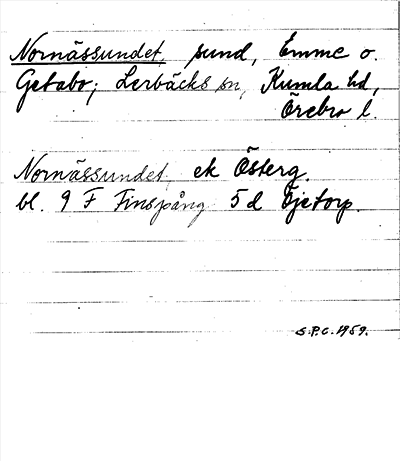 Nornässundet, sund, Emme o.
Getabo; Lerbäcks sn, Kumla hd,
Örebro l.
Nornässundet, ek Österg.
bl. 9 F Finspång 5 d Ejetorp.
S.P.C. 1959.